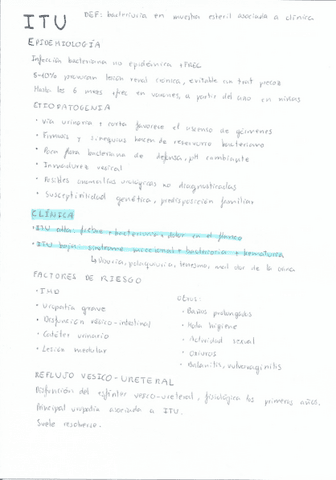 ITU
DEF: bacteriuria en muestra esteril asociada a clínica
EPIDEMIOLOGÍA
Infección bacteriana no epidémica + FREC
5-10% provocan lesión renal crónica, evitable con trat precoz
Hasta los 6 meses +frec en varones, a partir del año en niñas
ETIOPATOGENIA
• Vía urinaria + corta favorece el ascenso de gérmenes
• Fimosis y sinequias hacen de reservorio bacteriano
• Poca flora bacteriana de defensa, pH cambiante
• Inmadurez vesical
• Posibles anomalías urológicas no diagnosticadas
• Susceptibilidad genética, predisposición familiar
CLÍNICA
• ITU alta: fiebre + bacteriuria + dolor en el flanco
• ITU baja: síndrome miccional + bacteriuria + hematuria
disuria, polaquiuria, tenesmo, mal olor de la orina
FACTORES DE RIESGO
• Uropatía grave
• Disfunción vésico-intestinal
• Catéter urinario
• Lesión medular
Otros:
• Baños prolongados
• Mala higiene
• Actividad sexual
• Oxiuros
• Balanitis, vulvovaginitis
REFLUJO VESICO-URETERAL
Disfunción del esfínter vesico-ureteral, fisiológica los primeros años.
Principal uropatía asociada a ITU.
Suele resolverse.